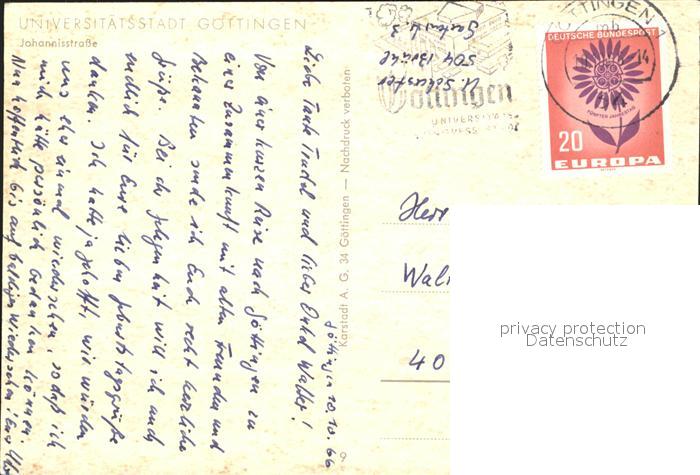 UNIVERSITÄTSSTADT GÖTTINGEN
Johannisstraße
Göttingen 10.10.66
Liebe Tante Trudel und lieber Onkel Walter!
Von einer kurzen Reise nach Göttingen zu
einer Zusammenkunft mit alten Freunden und
Bekannten sende ich Euch recht herzliche
Grüße. Bei der Gelegenheit will ich auch
endlich für Eure lieben Geburtstagsgrüße
danken. Ich hatte ja gehofft, wir würden
uns eher einmal wiedersehen, sodaß ich
mich hätte persönlich bedanken können.
Nun hoffentlich bis auf baldiges Wiedersehen! Eure
Karstadt A. G. 34 Göttingen — Nachdruck verboten
9
U. Schuster
504 Brühl
3
Göttingen
UNIVERSITÄTS
KONGRESS
GÖTTINGEN 1
mb
14
DEUTSCHE BUNDESPOST
FÜNFTER JAHRESTAG
20
EUROPA
Herr
Wal
40
privacy protection
Datenschutz